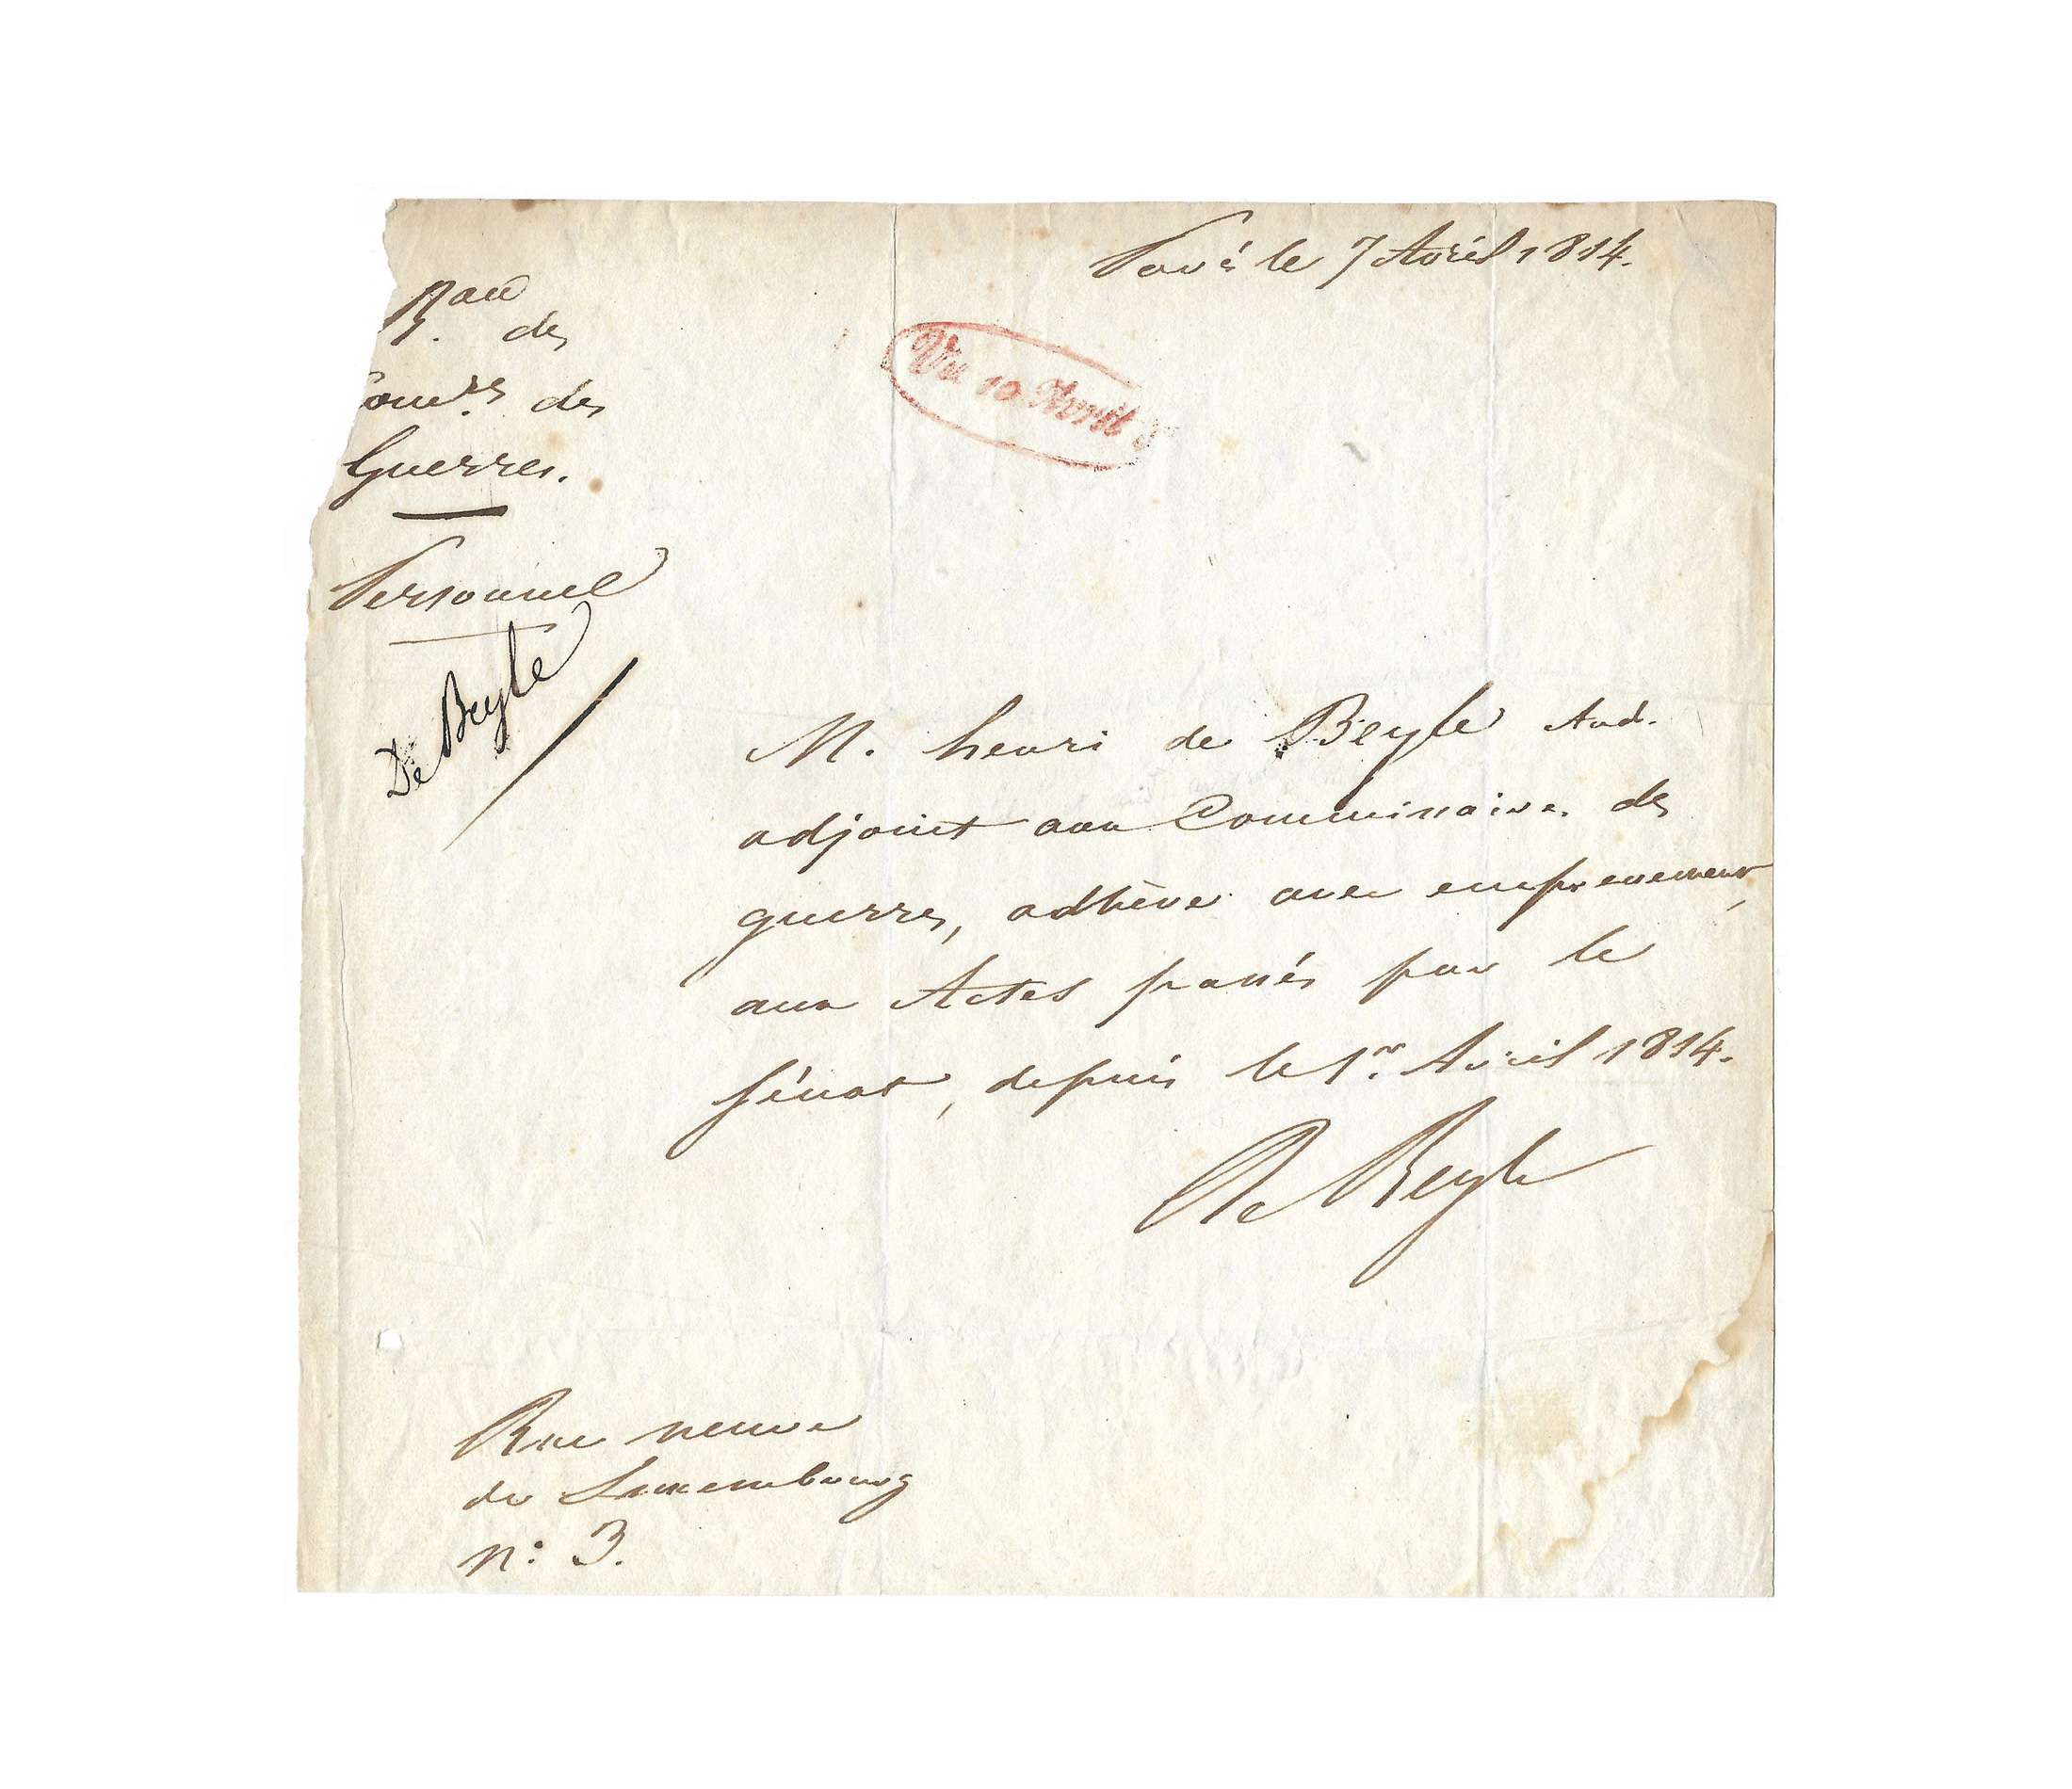 Paris le 7 Avril 1814.
Bau des
Comres des
Guerres.
Personnel
De Beyle
Vu 10 Avril
M. henri de Beyle And.
adjoint aux Commissaires des
guerres, adhère avec empressement,
aux Actes passés par le
sénat, depuis le 1er. Avril 1814.
De Beyle
Rue neuve
du Luxembourg
n: 3.